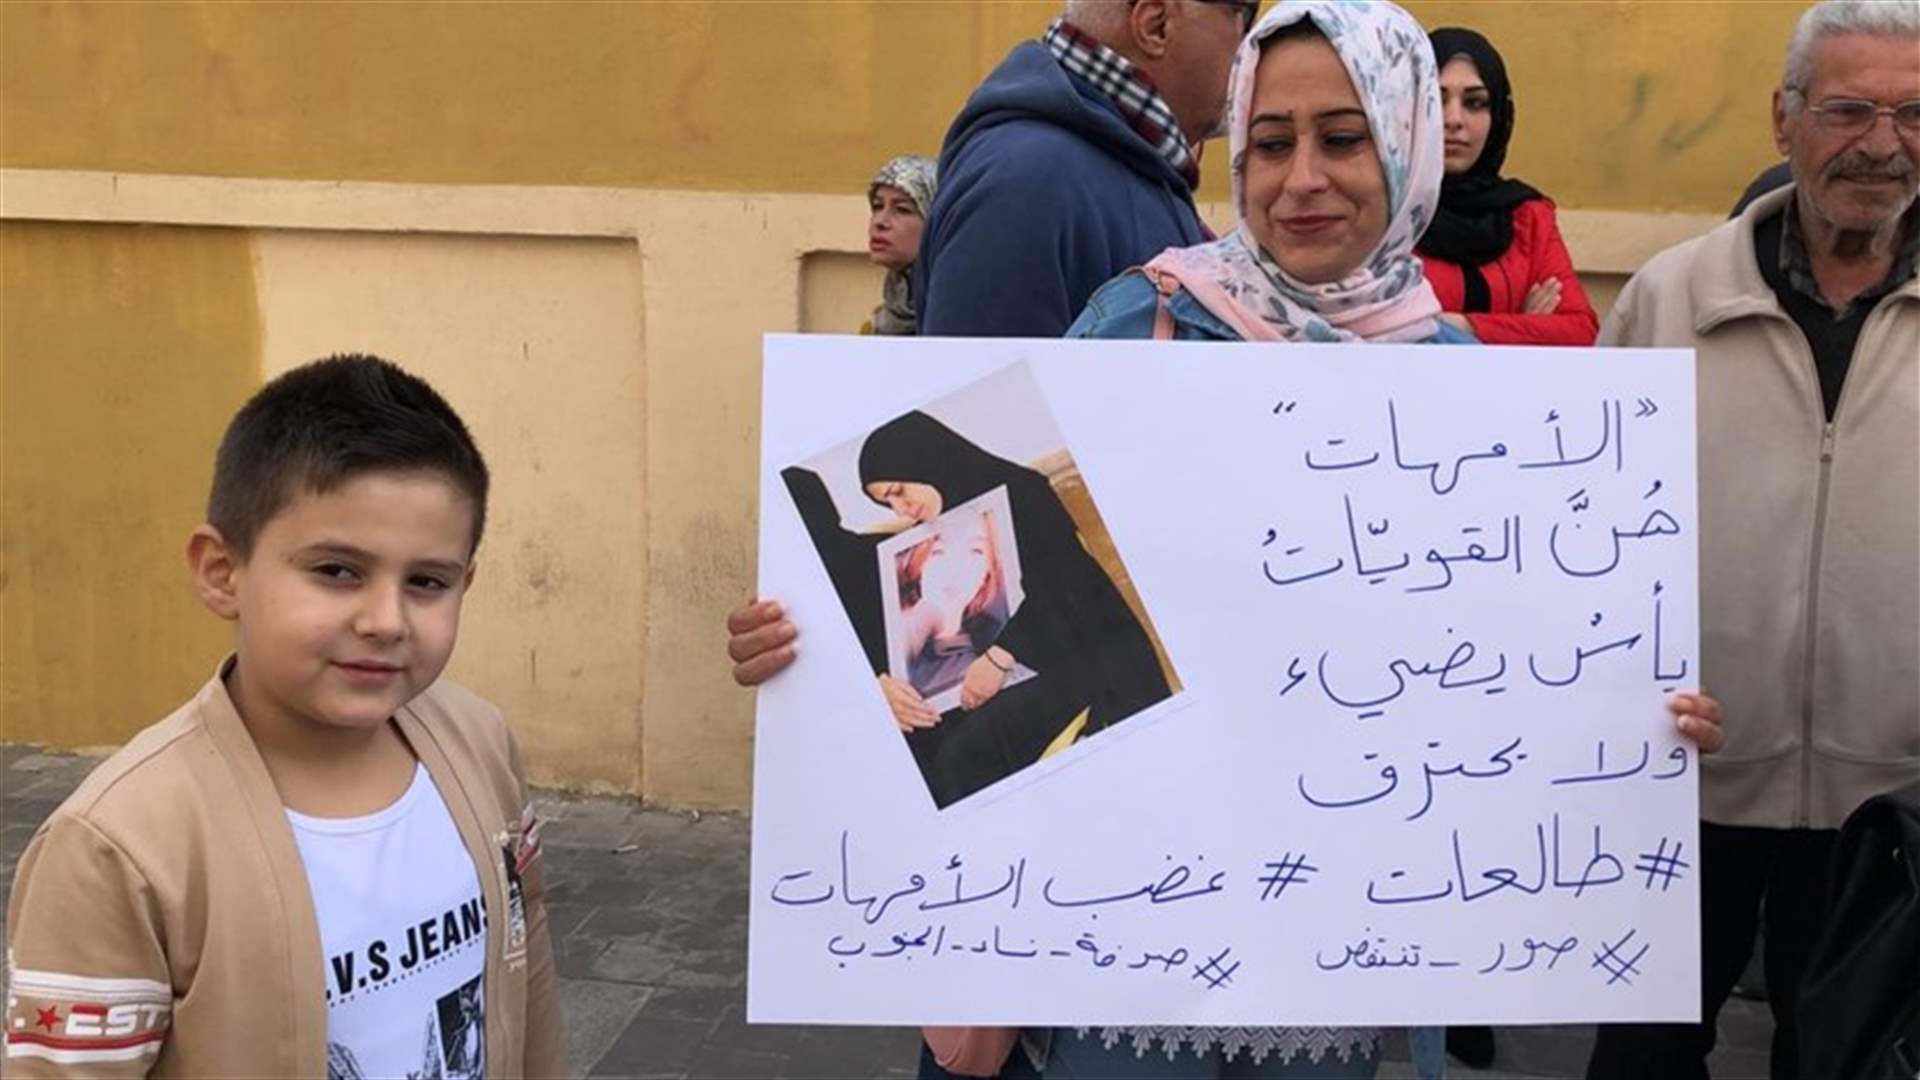 “الأمهات”
هُنَّ القويّاتُ
يأسْ يضيء
ولا يحترق
#طالعات #غضب الأمهات
#صور_تنتفض #صرخة-نساء-الجنوب
.V.S JEANS
EST